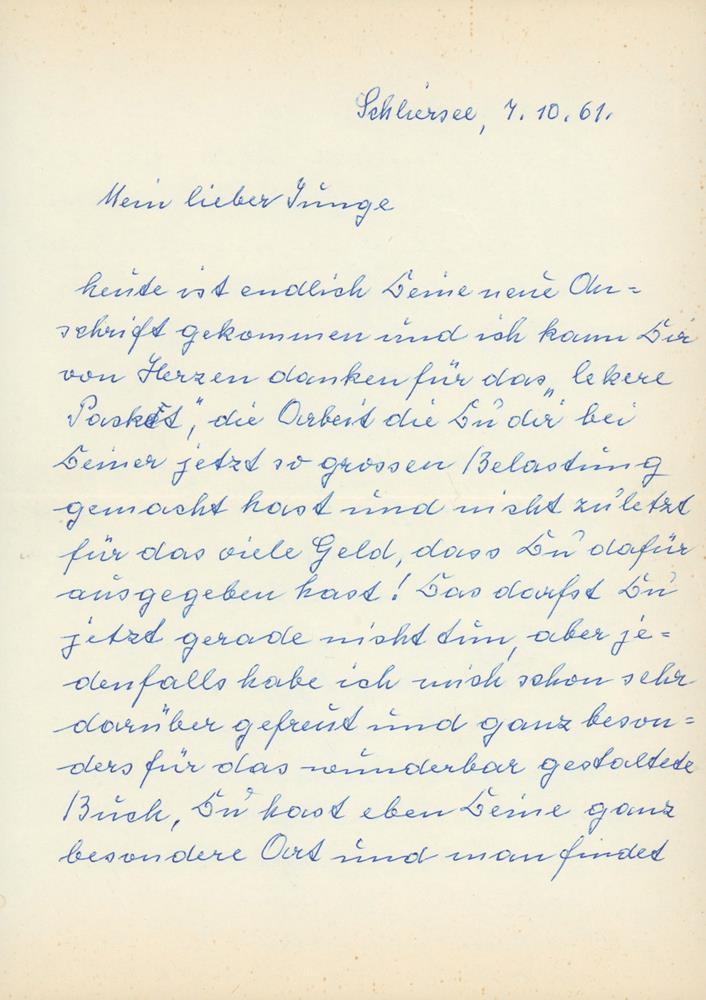 Schliersee, 7.10.61.
Mein lieber Junge
heute ist endlich Deine neue An=
schrift gekommen und ich kann Dir
von Herzen danken für das „lekere
Packet", die Arbeit die Du dir bei
Deiner jetzt so grossen Belastung
gemacht hast und nicht zuletzt
für das viele Geld, dass Du dafür
ausgegeben hast! Das darfst Du
jetzt gerade nicht tun, aber je=
denfalls habe ich mich schon sehr
darüber gefreut und ganz beson=
ders für das wunderbar gestaltete
Buch, Du hast eben Deine ganz
besondere Art und man findet